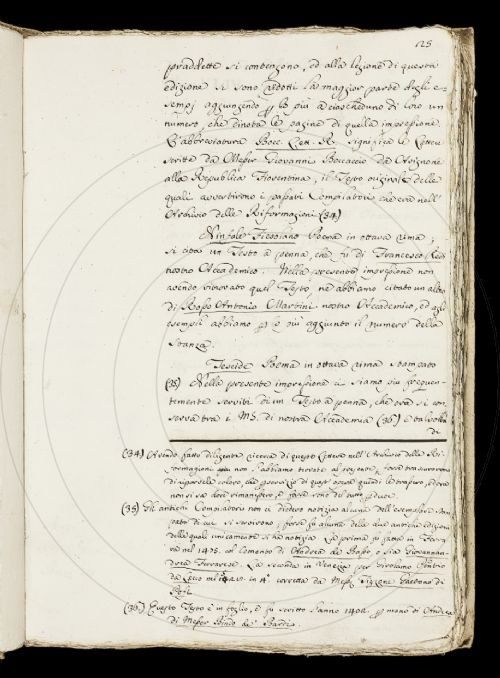 125
praddette si contengono, ed alla lezione di questa
edizione si sono ridotti la maggior parte degli e-
sempj aggiungendo p lo più a ciascheduno di loro un
numero che dinota le pagine di quella impressione.
L'abbreviatura Bocc. Lett. R. significa le Lettere
scritte da Messer Giovanni Boccaccio da Avignone
alla Repubblica Fiorentina, il Testo originale delle
quali avvertirono i passati Compilatori che era nell'
Archivio delle Riformagioni (34)
Ninfale Fiesolano Poema in ottava rima;
si cita un Testo a penna, che fu di Francesco Redi
nostro Accademico. Nella presente impressione non
avendo ritrovato quel Testo ne abbiamo citato un altro
di Rosso Antonio Martini nostro Accademico, ed agli
esempli abbiamo p o più aggiunto il numero della
Stanza.
Teseide Poema in ottava rima stampato
(35) Nella presente impressione ci siamo più frequen-
temente serviti di un Testo a penna, che ora si con-
serva tra i MS. di nostra Accademia (36) e talvolta
di
(34) Avendo fatto diligente ricerca di queste Lettere nell'Archivio delle Ri-
formagioni non l'abbiamo trovate al presente, forse trascurarono
di riporvele coloro, che p servizio di quest'opera quindi le trassero, ed ora
non si sa dove rimanessero, e forse sono del tutto perdute.
(35) Gli antichi Compilatori non ci diedero notizia alcuna dell'esemplare stam-
pato di cui si servirono, forse fu alcuna delle due antiche edizioni
delle quali unicamente si ha notizia. La prima fu fatta in Ferra-
ra nel 1475. col Comento di Andrea de' Bassi o sia Giovannan-
drea Ferrarese. La seconda in Venezia per Girolamo Pentio
da Lecco in 4°. corretta da Messer Tizzone Gaetano di
Pofi.
(36) Questo Testo è in foglio, e fu scritto l'anno 1402. p mano di Andrea
di Messer Bindo de' Bardi.